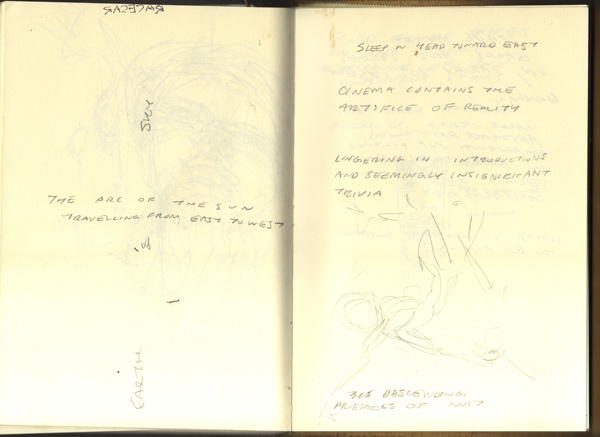 RACECAR
SKY
THE ARC OF THE SUN
TRAVELLING FROM EAST TO WEST
is
EARTH
SLEEP N HEAD TOWARD EAST
CINEMA CONTAINS THE
ARTIFICE OF REALITY
LINGERING IN INTRODUCTIONS
AND SEEMINGLY INSIGNIFICANT
TRIVIA
THE DESCENDING
PRIESTESS OF NUIT